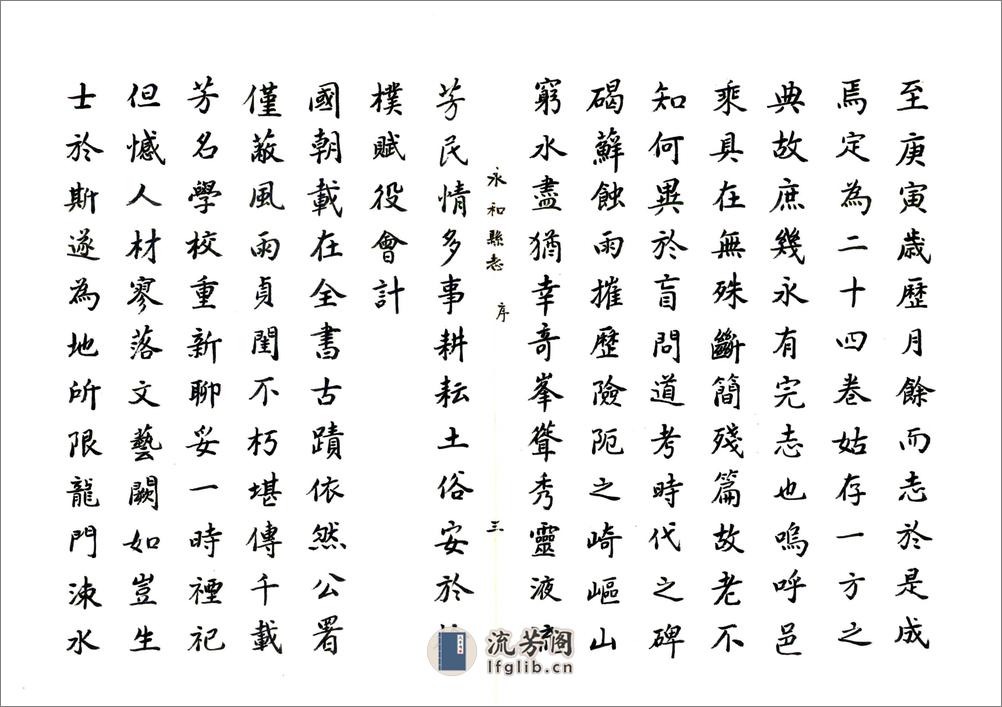 至庚寅歲歷月餘而志於是成
焉定為二十四卷姑存一方之
典故庶幾永有完志也嗚呼邑
乘具在無殊斷簡殘篇故老不
知何異於盲問道考時代之碑
碣蘚蝕雨摧歷險阨之崎嶇山
窮水盡猶幸奇峯聳秀靈液流
永和縣志 序 三
芳民情多事耕耘土俗安於
樸賦役會計
國朝載在全書古蹟依然公署
僅蔽風雨貞閨不朽堪傳千載
芳名學校重新聊妥一時禋祀
但憾人材寥落文藝闕如豈生
士於斯遂為地所限龍門涑水
流芳阁
lfglib.cn